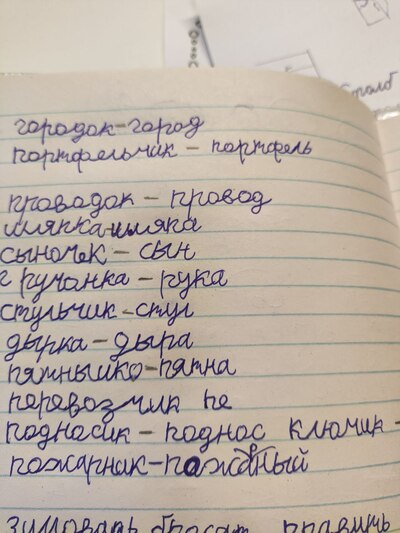 столб
городок-город
портфельчик - портфель
проводок - провод
шляпка-шляпа
сыночек - сын
ручонка - рука
стульчик-стул
дырка-дыра
пятнышко-пятна
перевозчик пе
подносик - поднос ключик -
пожарник-
зимовать бросат правит